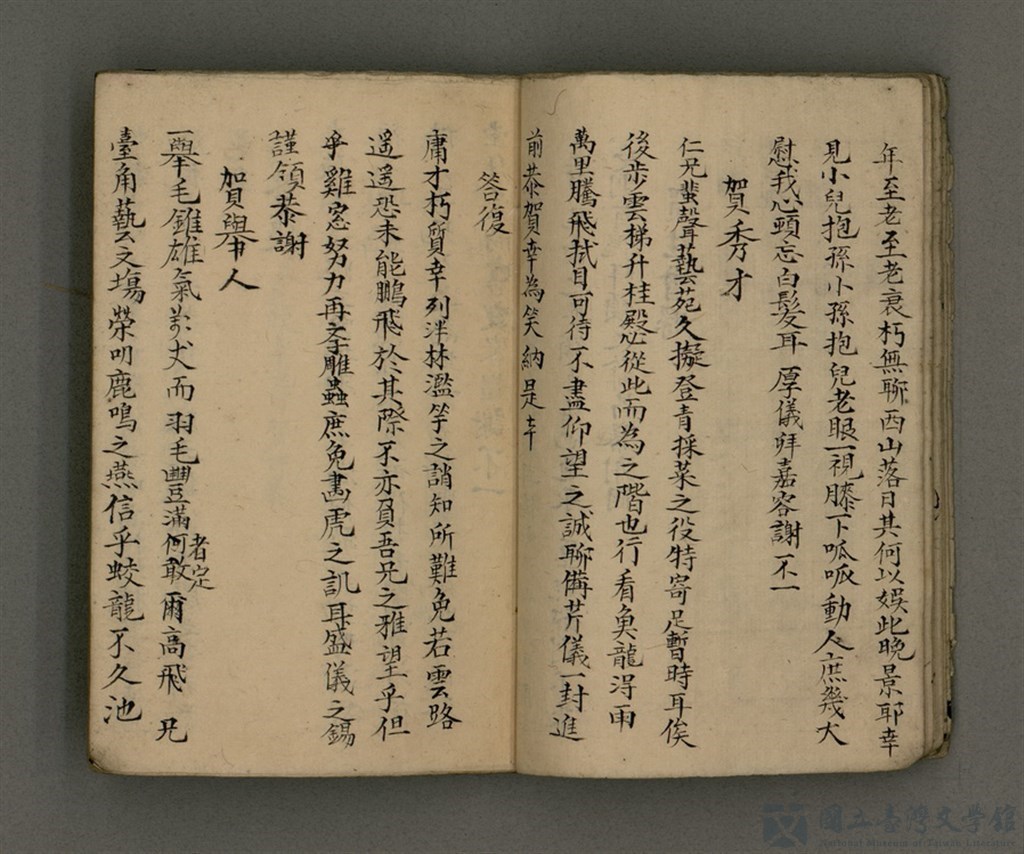 年至老至老衰朽無聊西山落日其何以娛此晚景耶幸
見小兒抱孫小孫抱兒老眼一視膝下呱呱動人庶幾大
慰我心頭忘白髮耳 厚儀拜嘉容謝不一
賀秀才
仁兄蜚聲藝苑久擬登青採菜之役特寄足暫時耳俟
後步雲梯升桂殿必從此而為之階也行看魚龍淂雨
萬里騰飛拭目可待不盡仰望之誠聊備芹儀一封進
前恭賀幸為笑納是幸
答復
庸才朽質幸列泮林濫竽之誚知所難免若雲路
遥遥恐未能鵬飛於其際不亦負吾兄之雅望乎但
乎雞窓努力再文雕蟲庶免畫虎之訊耳盛儀之錫
謹領恭謝
賀舉人
一舉毛錐雄氣萬丈而羽毛豐滿者定何敢爾高飛 兄
臺角藝文塲榮叨鹿鳴之燕信乎蛟龍不久池
國立臺灣文學館
National Museum of Taiwan Literature